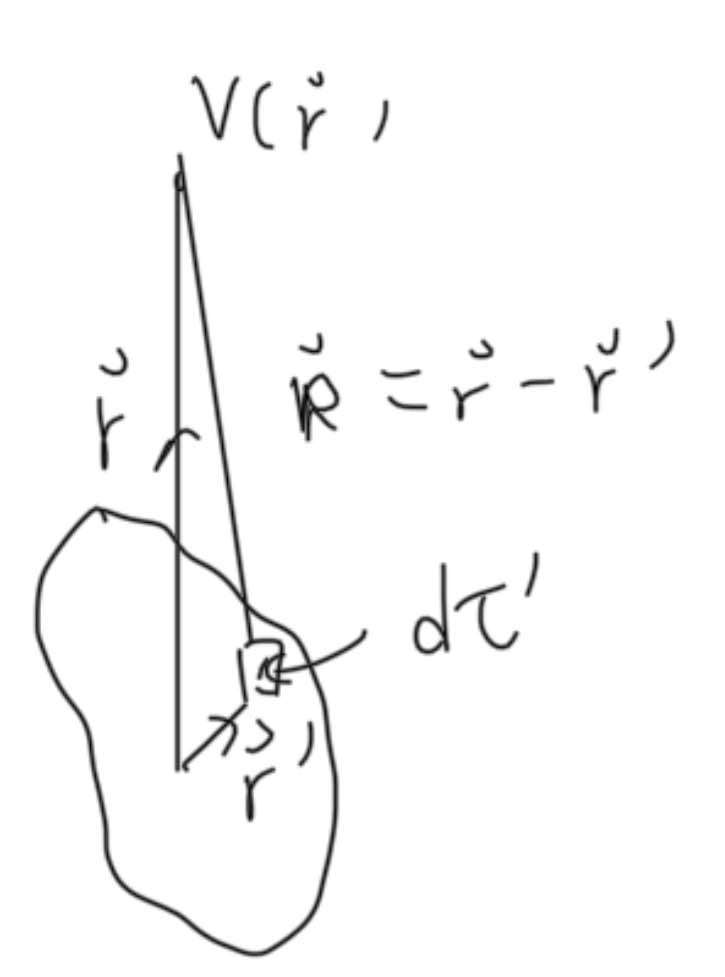 V(r⃗)
r⃗
R⃗ = r⃗ - r⃗'
dτ'
r⃗'